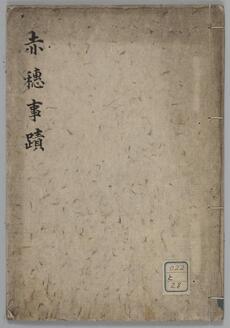 赤穗事蹟
022
と
28